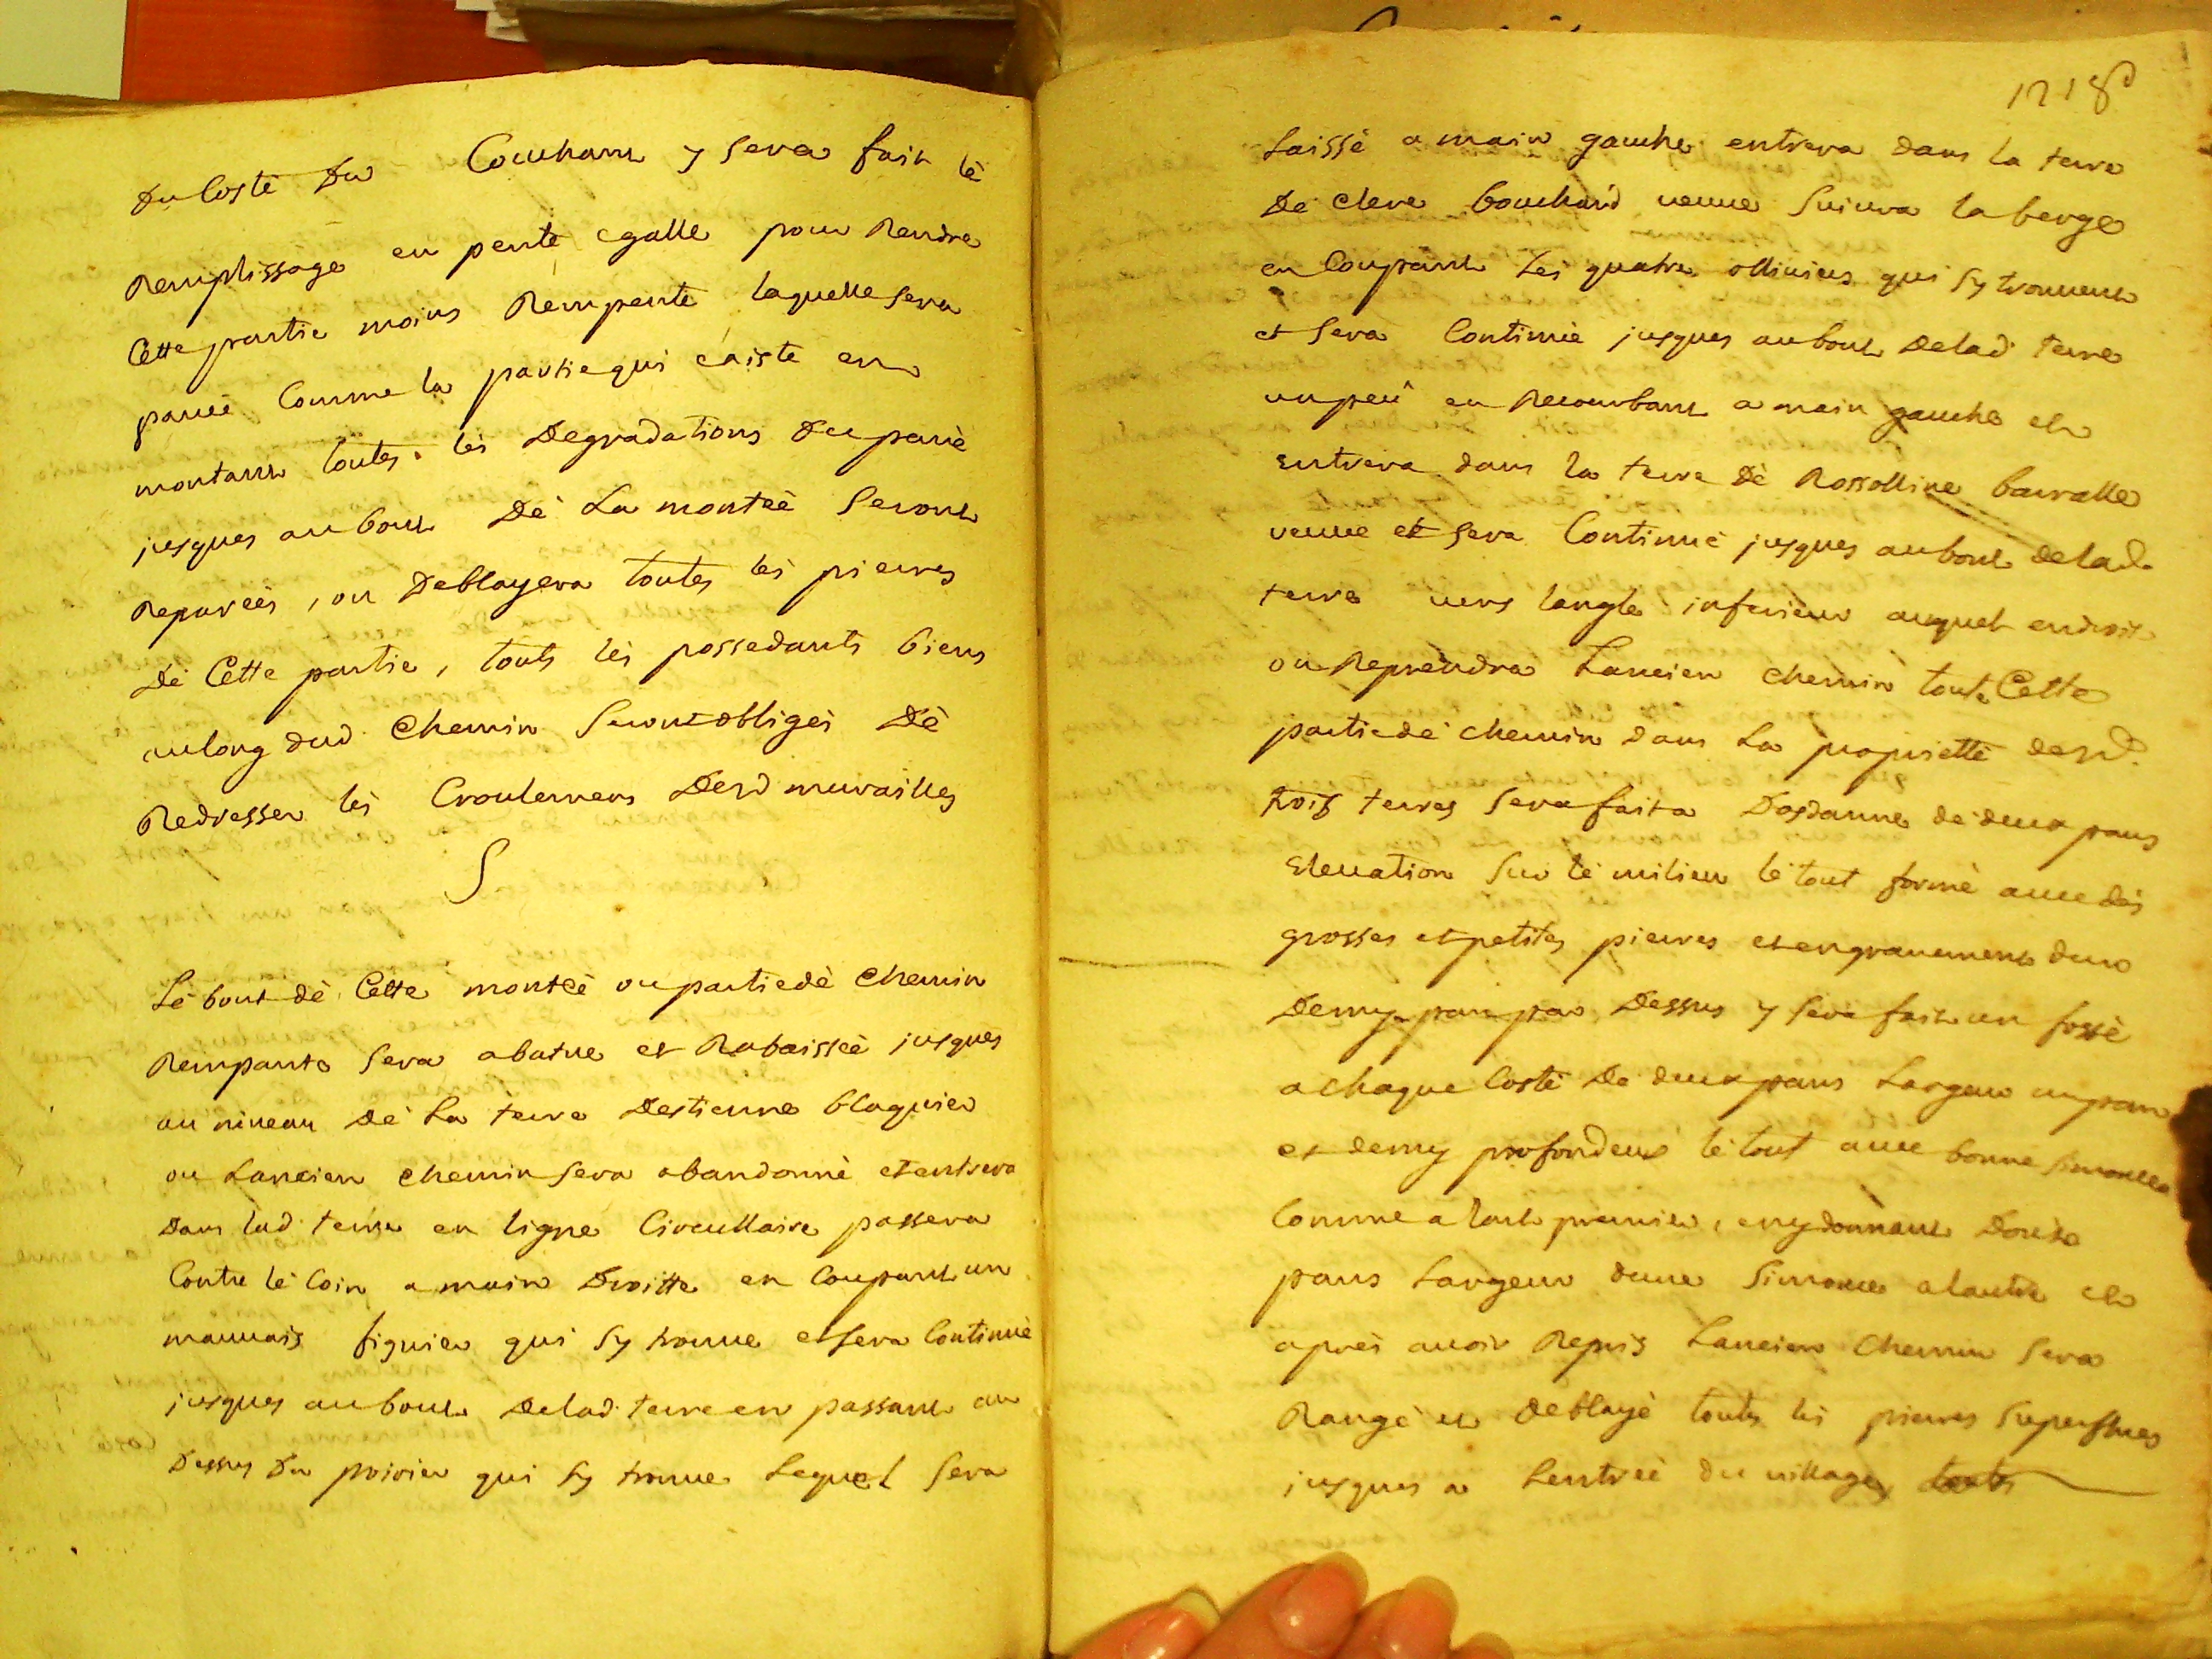 Du Costé Du Couchant y sera fait lé
Remplissage en penté egalle pour Rendre
Cette partie moins Rempente laquelle sera
pavée Comme la partie qui éxiste en
montant toutes lés Degradations du pavé
jusques au bout Dé La montéé Seront
Reparéés, on Deblayera toutes lés pierres
Dé Cette partie, touts lés possedants biens
au long dud. Chemin Seront obligés Dé
Redresser lés Croulemens Desd murailles
S
Lé bout dé Cette montéé ou partie dé Chemin
Rempante sera abatue et Rabaisséé jusques
au niveau Dé La terre Destienne blaquier
ou Lancien chemin sera abandonné et entrera
Dans lad. terre en ligne Circullaire passera
Contre lé Coin a main Droitte en Coupant un
mauvais figuier qui sy trouve et sera Continué
jusques au bout Delad. terre en passant au
Dessus Du poirier qui sy trouve Lequel Sera
1218
Laissé a main gauche entrera dans la terre
Dé Clere bouchard veuve Suivra la berge
en Coupant Lés quatre olliviers qui sy trouvent
et sera Continué jusques au bout Delad. terre
un peu en Recourbant a main gauche et
entrera dans la terre Dé Rossolline barralle
veuve et sera Continué jusques au bout delad.
terre vers langle inferieur auquel endroit
on Reprendra Lancien chemin toute Cette
partie dé chemin dans La proprietté desd.
trois terres sera fait a Dosdanne dé deux pans
Elevation sur lé milieu lé tout formé avec dés
grosses et petites pierres et engravement dun
Demy pan par Dessus y sera fait un fossé
a chaque Costé Dé deux pans Largeur un pan
et demy profondeur lé tout avec bonne
Comme a lart premier, en y donnant Douze
pans Largeur dune a lautre et
aprés avoir Repris Lancien Chemin sera
Rangé et Deblayé touts lés pierres Superflues
jusques a Lentréé du village